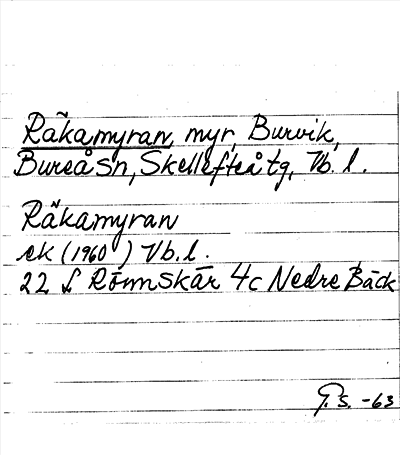 Räkamyran, myr, Burvik,
Bureå sn, Skellefteå tg, Vb. l.
Räkamyran
ek (1960) Vb. l.
22 L Rönnskär 4c Nedre Bäck
G. S. -63